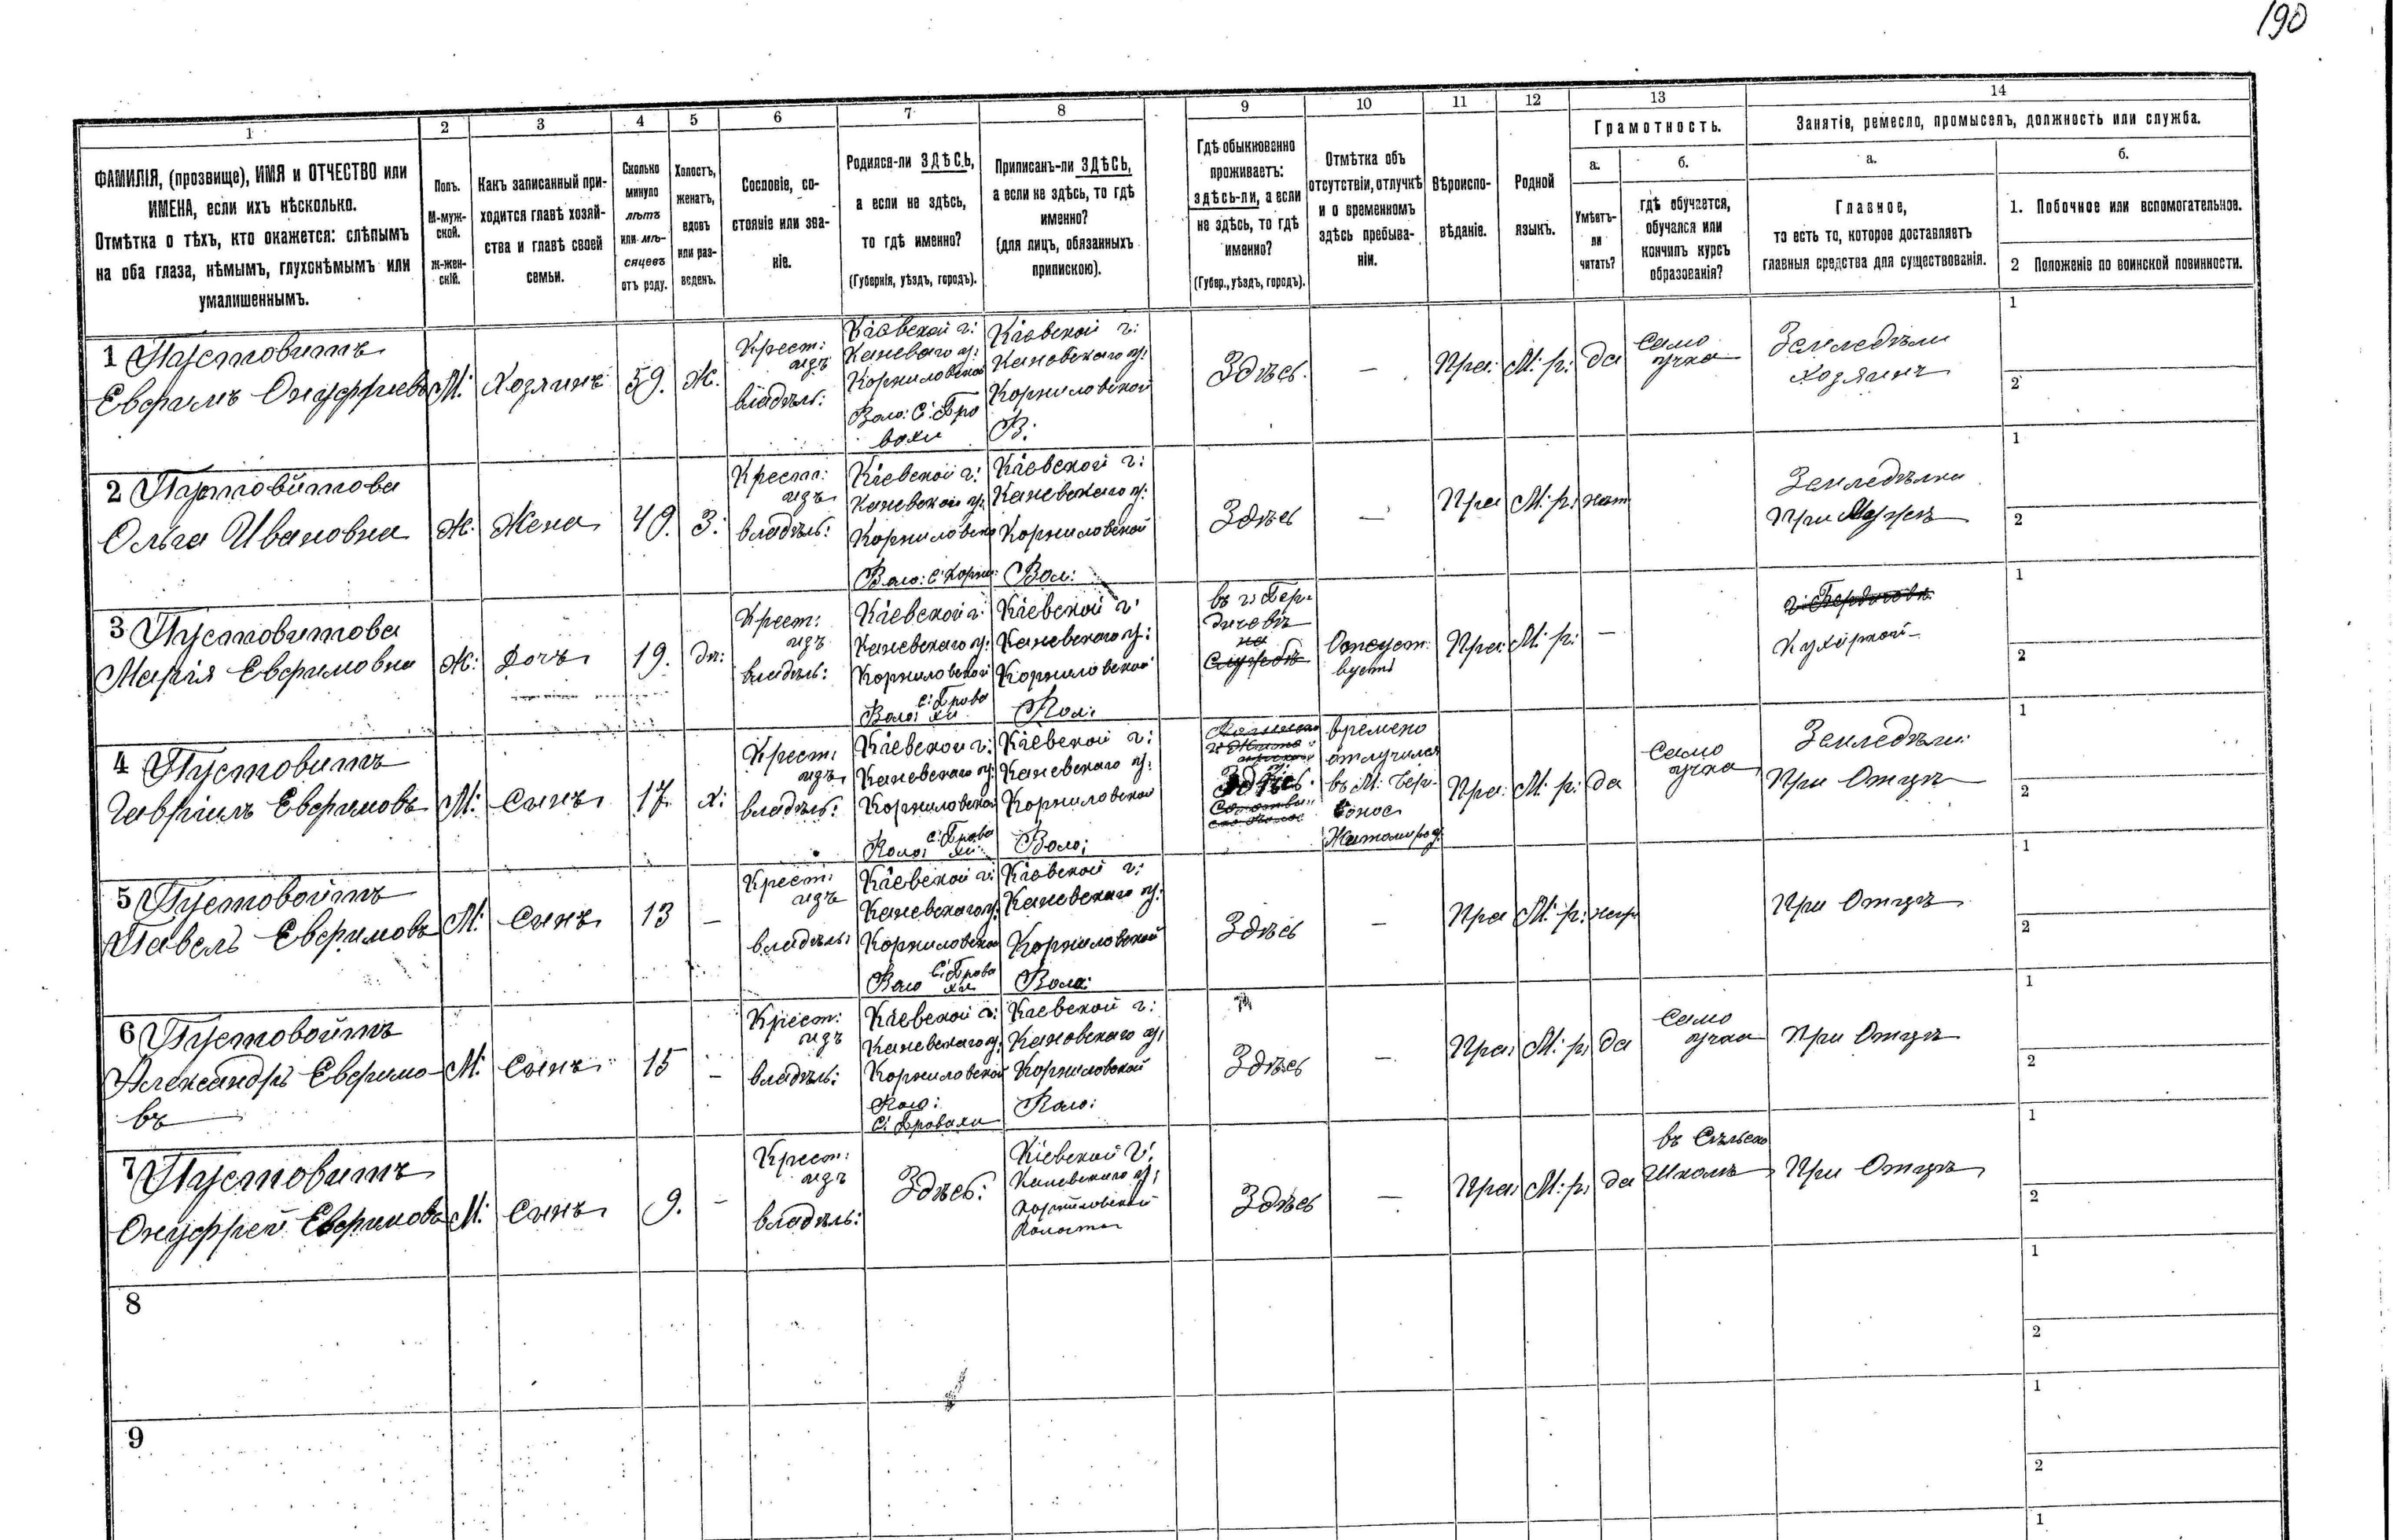 190
1 2 3 4 5 6 7 8 9 10 11 12 13 14
ФАМИЛІЯ, (прозвище), ИМЯ и ОТЧЕСТВО или
ИМЕНА, если ихъ нѣсколько.
Отмѣтка о тѣхъ, кто окажется: слѣпымъ
на оба глаза, нѣмымъ, глухонѣмымъ или
умалишеннымъ.
Полъ.
М-муж-
ской.
Ж-жен-
скій.
Какъ записанный при-
ходится главѣ хозяй-
ства и главѣ своей
семьи.
Сколько
минуло
лѣтъ
или мѣ-
сяцевъ
отъ роду.
Холостъ,
женатъ,
вдовъ
или раз-
веденъ.
Сословіе, со-
стояніе или зва-
ніе.
Родился-ли ЗДѢСЬ,
а если не здѣсь,
то гдѣ именно?
(Губернія, уѣздъ, городъ).
Приписанъ-ли ЗДѢСЬ,
а если не здѣсь, то гдѣ
именно?
(для лицъ, обязанныхъ
припискою).
Гдѣ обыкновенно
проживаетъ:
здѣсь-ли, а если
не здѣсь, то гдѣ
именно?
(Губер., уѣздъ, городъ).
Отмѣтка объ
отсутствіи, отлучкѣ
и о временномъ
здѣсь пребыва-
ніи.
Вѣроиспо-
вѣданіе.
Родной
языкъ.
Грамотность.
а.
Умѣетъ-
ли
читать?
б.
гдѣ обучается,
обучался или
кончилъ курсъ
образованія?
Занятіе, ремесло, промыселъ, должность или служба.
а.
Главное,
то есть то, которое доставляетъ
главныя средства для существованія.
б.
1. Побочное или вспомогательное.
2 Положеніе по воинской повинности.
1 Пустовитъ
Евфимъ Онуффіевъ
М:
Хозяинъ
59.
Ж.
Крест:
изъ
владѣль:
Кіевской г:
Каневаго у:
Корниловской
Воло: С: Бро
вахи
Кіевской г:
Каневскаго у:
Корниловской
В:
Здѣсь.
—
Пра:
М: р:
да
Само
учка
Земледѣли
хозяинъ
1
2
2 Пустовитова
Ольга Ивановна
Ж:
Жена
49.
З:
Крест:
изъ
владѣль:
Кіевской г:
Каневской у:
Корниловско
Воло: С: Корни:
Кіевской г:
Каневскаго у:
Корниловской
Вол:
Здѣсь
—
Пра
М: р:
нет
Земледѣлии
При Мужѣ
1
2
3 Пустовитова
Марія Евфимовна
Ж:
Дочь
19.
дѣ:
Крест:
изъ
владѣль:
Кіевской г:
Каневскаго у:
Корниловской
Воло: С: Брова
хи
Кіевской г:
Каневскаго у:
Корниловской
Вол:
въ г: Бер-
дичевѣ
на
Службѣ
Отсуст
вуетъ
Пра:
М: р:
—
г: Бердичевѣ
Кухаркой
1
2
4 Пустовитъ
Гавріилъ Евфимовъ
М:
Сынъ
17.
х:
Крест:
изъ
владѣль:
Кіевской г:
Каневскаго у:
Корниловской
Воло: С: Брова
хи:
Кіевской г:
Каневскаго у:
Корниловской
Воло:
Здѣсь.
времено
отлучился
въ М:
Житомир у:
Пра:
М: р:
да
Само
учка
Земледѣли:
При Отцѣ
1
2
5 Пустовойтъ
Павелъ Евфимовъ
М:
Сынъ
13
—
Крест:
изъ
владѣль:
Кіевской г:
Каневскаго у:
Корниловской
Воло С: Брова
хи
Кіевской г:
Каневскаго у:
Корниловской
Воло:
Здѣсь
—
Пра
М: р:
При Отцѣ
1
2
6 Пустовойтъ
Александръ Евфимо-
въ
М:
Сынъ
15
—
Крест:
изъ
владѣль:
Кіевской г:
Каневскаго у:
Корниловской
Воло:
С: Бровахи
Кіевской г:
Каневскаго у:
Корниловской
Воло:
Здѣсь
—
Пра:
М: р:
да
Само
учка
При Отцѣ
1
2
7 Пустовитъ
Онуффрей Евфимовъ
М:
Сынъ
9.
—
Крест:
изъ
владѣль:
Здѣсь:
Кіевской г:
Каневскаго у:
Корниловской
Волости
Здѣсь
—
Пра:
М: р:
да
въ Сельско
Школѣ
При Отцѣ
1
2
8
1
2
9
1
2
1